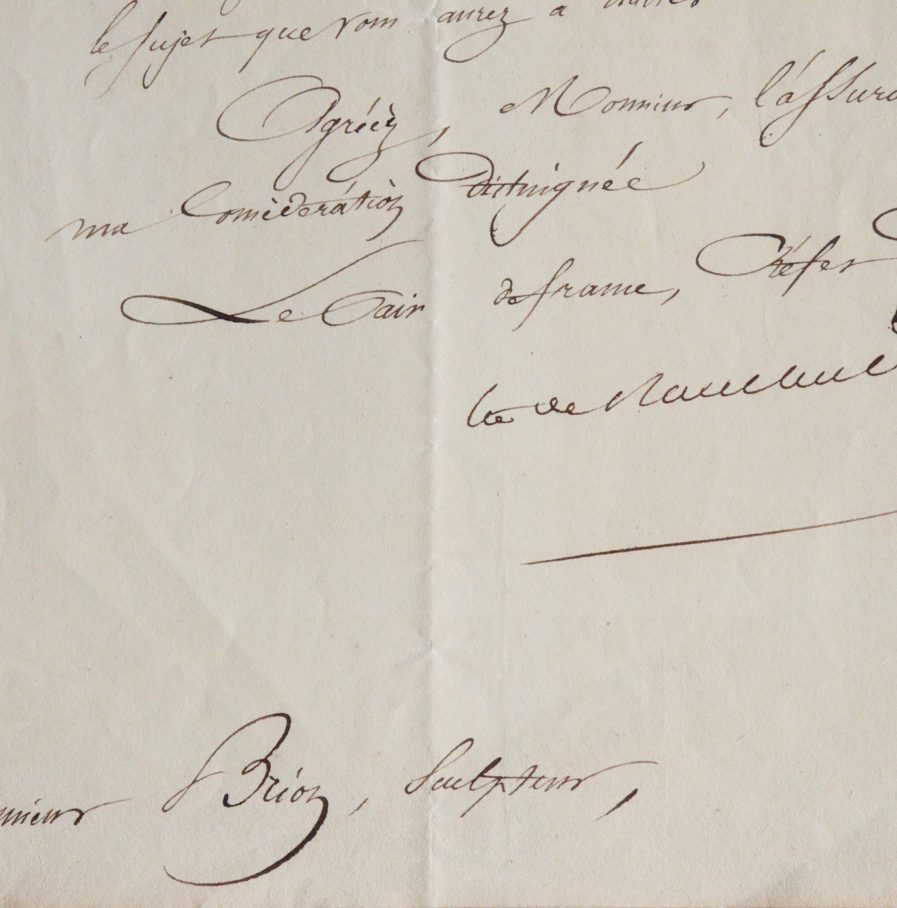 le sujet que vous aurez à traiter
Agréez, Monsieur, l'assura
ma Considération distinguée
Le Pair de france, Préfet
Cte de Rambuteau
Monsieur Brion, Sculpteur,